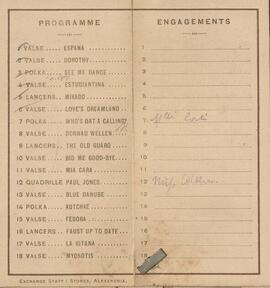 PROGRAMME
1 VALSE ..... ESPANA
2 VALSE ..... DOROTHY
3 POLKA ..... SEE ME DANCE
4 VALSE ..... ESTUDIANTINA
5 LANCERS ... MIKADO
6 VALSE ..... LOVE'S DREAMLAND
7 POLKA ..... WHO'S DAT A CALLING
8 VALSE ..... DONNAU WELLEN
9 LANCERS ... THE OLD GUARD
10 VALSE ..... BID ME GOOD-BYE
11 VALSE ..... MIA CARA
12 QUADRILLE .. PAUL JONES
13 VALSE ..... BLUE DANUBE
14 POLKA ..... KUTCHKE
15 VALSE ..... FEDORA
16 LANCERS ... FAUST UP TO DATE
17 VALSE ..... LA GITANA
18 VALSE ..... MYOSOTIS
EXCHANGE STAFF STORES, ALEXANDRIA.
ENGAGEMENTS
1
2
3
4
5
6
7
8
9
10
11
12 Miss
13
14
15
16
17
18